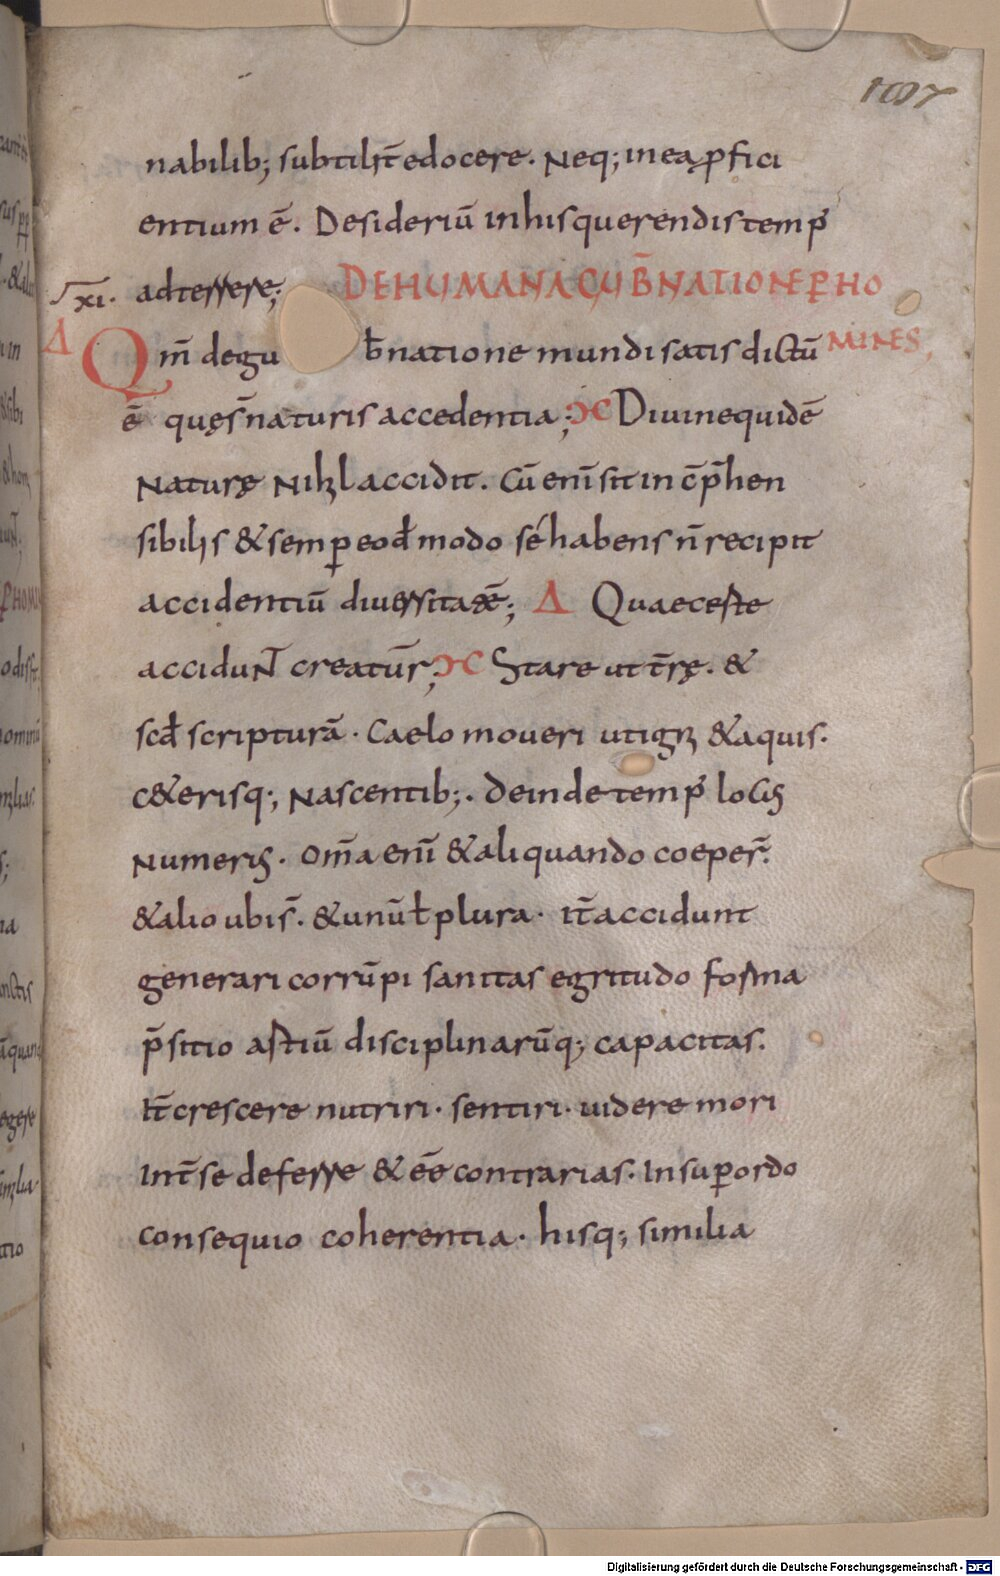 107
nabilib; subtilit̄ edocere. Neq; in ea ꝓfici
entium ē. Desideriū in his querendis temp̄
xi. adtessere; DE HUMANA GUB̄NATIONE ꝑ HO
Δ Qm̄ degu b̄natione mundi satis dictū MINES,
ē quęs̄ naturis accedentia; ƆC Divine quidē
Naturę Nihil accidit. Cū enī sit in cōp̄hen
sibilis & semꝑ eod̄ modo sé habens n̄ recipit
accidentiū diuersitatē; Δ Quae ceste
acciduNT creatūr; ƆC Stare ut t̄rę. &
scd̄ scripturā. Caelo moveri ut igni & aquis.
c&erisq; Nascentib;. Deinde temp̄ locis
Numeris. Om̄a enī & aliquando coeper̄.
& alio ubi s̄. & unū ł plura. it̄ accidunt
generari corrūpi sanitas egritudo forma
p̄sitio artiū disciplinarūq; capacitas.
It̄ crescere nutriri. sentiri. uidere mori
Int̄ se deferre & eē contrarias. Insuꝑ ordo
consequio coherentia. hisq; similia
Digitalisierung gefördert durch die Deutsche Forschungsgemeinschaft - DFG